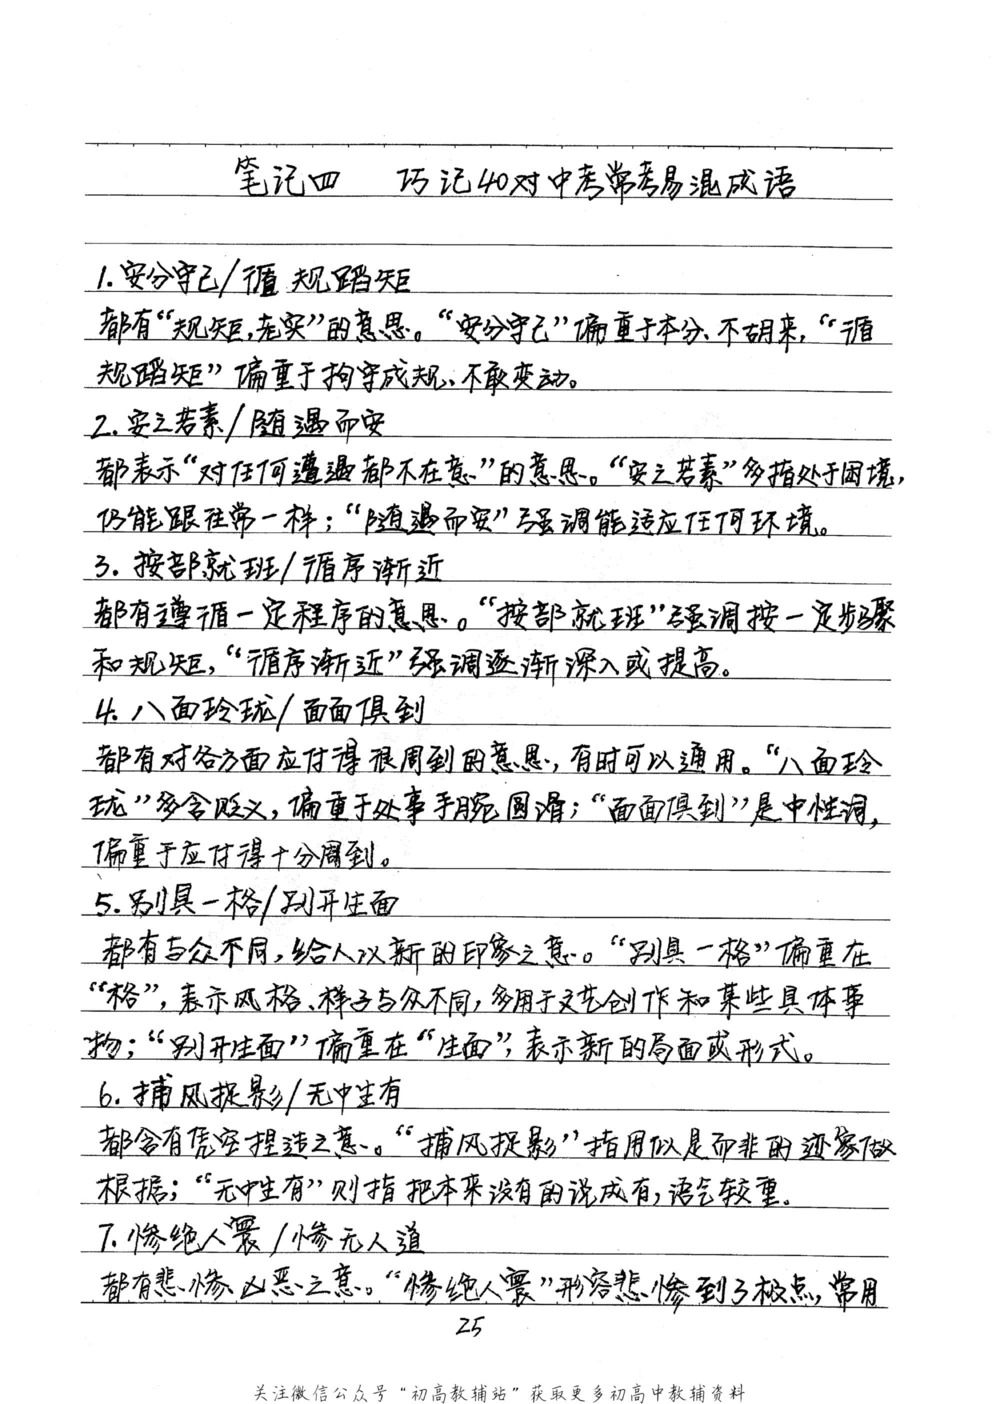 笔记四 巧记40对中考常考易混成语
1.安分守己/循规蹈矩
都有“规矩,老实”的意思。“安分守己”偏重于本分、不胡来,“循
规蹈矩”偏重于拘守成规、不敢变动。
2.安之若素/随遇而安
都表示“对任何遭遇都不在意”的意思。“安之若素”多指处于困境,
仍能跟往常一样;“随遇而安”强调能适应任何环境。
3.按部就班/循序渐近
都有遵循一定程序的意思。“按部就班”强调按一定步骤
和规矩,“循序渐近”强调逐渐深入或提高。
4.八面玲珑/面面俱到
都有对各方面应付得很周到的意思,有时可以通用。“八面玲
珑”多含贬义,偏重于处事手腕圆滑;“面面俱到”是中性词,
偏重于应付得十分周到。
5.别具一格/别开生面
都有与众不同,给人以新的印象之意。“别具一格”偏重在
“格”,表示风格、样子与众不同,多用于文艺创作和某些具体事
物;“别开生面”偏重在“生面”,表示新的局面或形式。
6.捕风捉影/无中生有
都含有凭空捏造之意。“捕风捉影”指用似是而非的迹象做
根据;“无中生有”则指把本来没有的说成有,语气较重。
7.惨绝人寰/惨无人道
都有悲惨、凶恶之意。“惨绝人寰”形容悲惨到了极点,常用
25
关注微信公众号“初高教辅站”获取更多初高中教辅资料